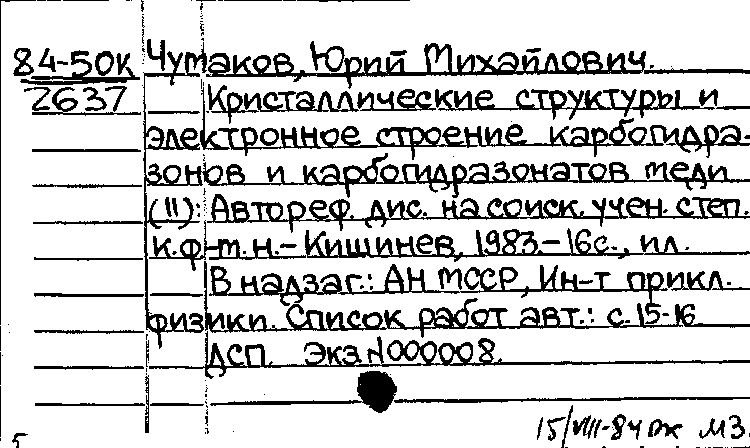 84-50К Чумаков, Юрий Михайлович.
2637 Кристаллические структуры и
электронное строение карбогидра-
зонов и карбогидразонатов меди
(II): Автореф. дис. на соиск. учен. степ.
к.ф-м.н.- Кишинев, 1983.-16с., ил.
В надзаг.: АН МССР, Ин-т прикл.
физики. Список работ авт.: с. 15-16
ДСП. Экз N000008.
15/VIII-84 МЗ
5